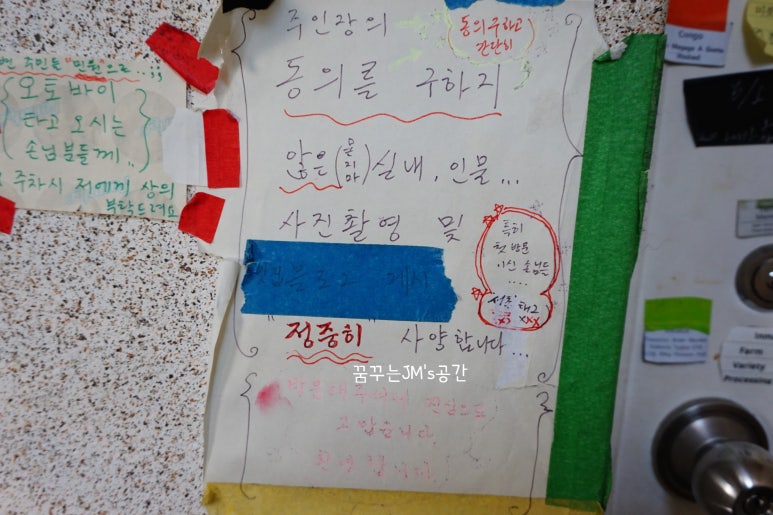 주인장의
동의 구하고
간단히
동의를 구하지
않은 (묻지마) 실내, 인물...
사진촬영 및
특히
첫 방문
이신 손님들
....
블로그 게시
정중히 사양합니다...
방문해 주셔서 진심으로
고맙습니다.
환영합니다
주인은
오토바이
타고 오시는
손님분들께..
주차시 저에게 상의
부탁드려요
꿈꾸는JM's공간
Congo
Farm
Variety
Processing